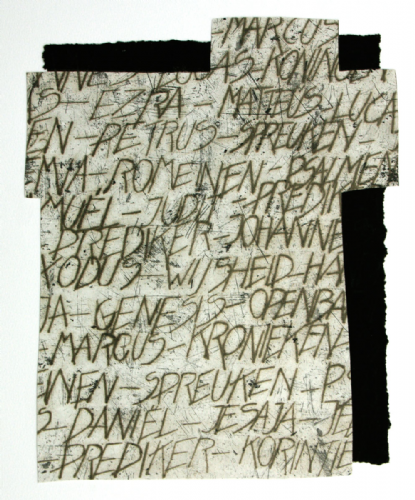 - MARCUS
LUCAS KONIN
S - EZRA - MATTEUS LUCA
EN - PETRUS SPREUKEN -
EMIA - ROMEINEN - PSALMEN
MUEL - JUDIT - PREDIK
PREDIKER - JOHANNE
XODUS - WIJSHEID - HA
JA - GENESIS - OPENBA
- MARCUS KRONIEKEN
NEN - SPREUKEN - P
S - DANIEL - JESAJA - JE
- PREDIKER - KORINT